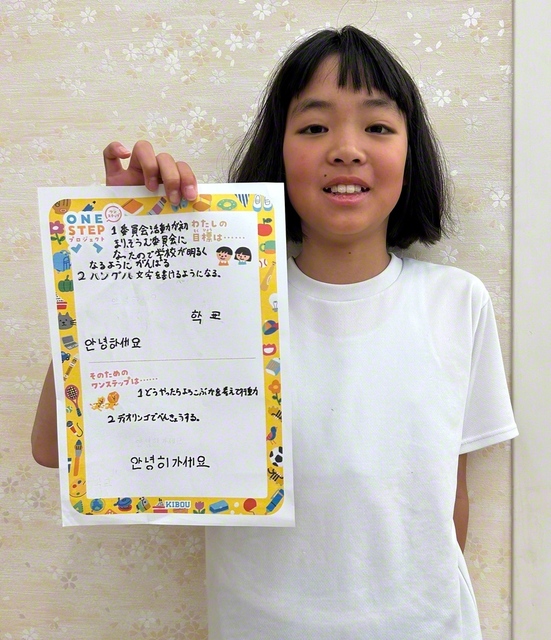 ONE
STEP
プロジェクト
わたしの
目標は……
1 委員会活動が初
まりそうえ委員会に
なったので学校が明るく
なるようにがんばる
2 ハングル文字を書けるようになる。
학 코
안녕하세요
そのための
ワンステップは……
1 どうやったらよろこぶかを考えて行動
2 デオリンゴでべんきょうする。
안녕히가세요
KIBOU